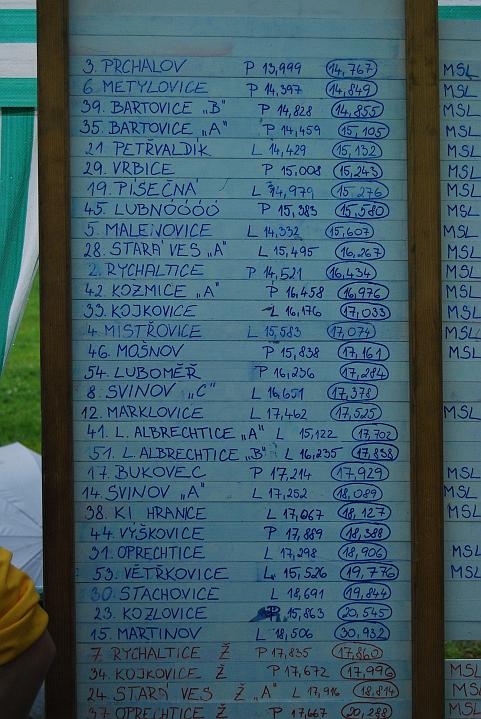 3. PRCHALOV P 13,999 14,767 MSL
6. METYLOVICE P 14,397 14,849 MSL
39. BARTOVICE „B" P 14,828 14,855 MSL
35. BARTOVICE „A" P 14,459 15,105 MSL
21. PETŘVALDIK L 14,429 15,132 MSL
29. VRBICE P 15,008 15,243 MSL
19. PÍSEČNÁ L 14,979 15,276 MSL
45. LUBNÓÓÓÓ P 15,383 15,580 MSL
5. MALENOVICE L 14,332 15,607 MSL
28. STARÁ VES „A" L 15,495 16,267 MSL
2. RYCHALTICE P 14,521 16,434 MSL
42. KOZMICE „A" P 16,458 16,976 MSL
33. KOJKOVICE L 16,176 17,033 MSL
4. MISTŘOVICE L 15,583 17,074 MSL
46. MOŠNOV P 15,838 17,161 MSL
54. LUBOMĚŘ P 16,236 17,284
8. SVINOV „C" L 16,651 17,378
12. MARKLOVICE L 17,462 17,525 MSL
41. L. ALBRECHTICE „A" L 15,122 17,702
51. L. ALBRECHTICE „B" L 16,235 17,858
17. BUKOVEC P 17,214 17,929 MSL
14. SVINOV „A" L 17,252 18,089 MSL
38. KI HRANICE L 17,067 18,127 MSL
44. VÝŠKOVICE P 17,889 18,388
31. OPRECHTICE L 17,298 18,906 MSL
53. VĚTŘKOVICE L 15,526 19,776 MSL
30. STACHOVICE L 18,691 19,844
23. KOZLOVICE 15,863 20,545
15. MARTINOV L 18,506 30,932
7. RYCHALTICE Ž P 17,835 17,860
34. KOJKOVICE Ž P 17,672 17,996 MSL
24. STARÁ VES Ž „A" L 17,916 18,814 MSL
37. OPRECHTICE Ž P 17,667 20,288 MSL